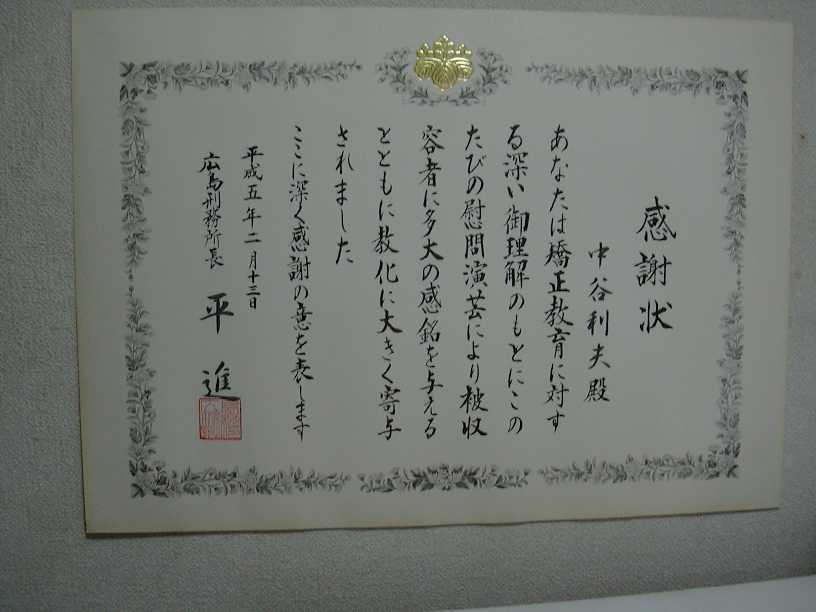 感謝状
中谷利夫殿
あなたは矯正教育に対す
る深い御理解のもとにこの
たびの慰問演芸により被収
容者に多大の感銘を与える
とともに教化に大きく寄与
されました
ここに深く感謝の意を表します
平成五年二月十三日
広島刑務所長
平進